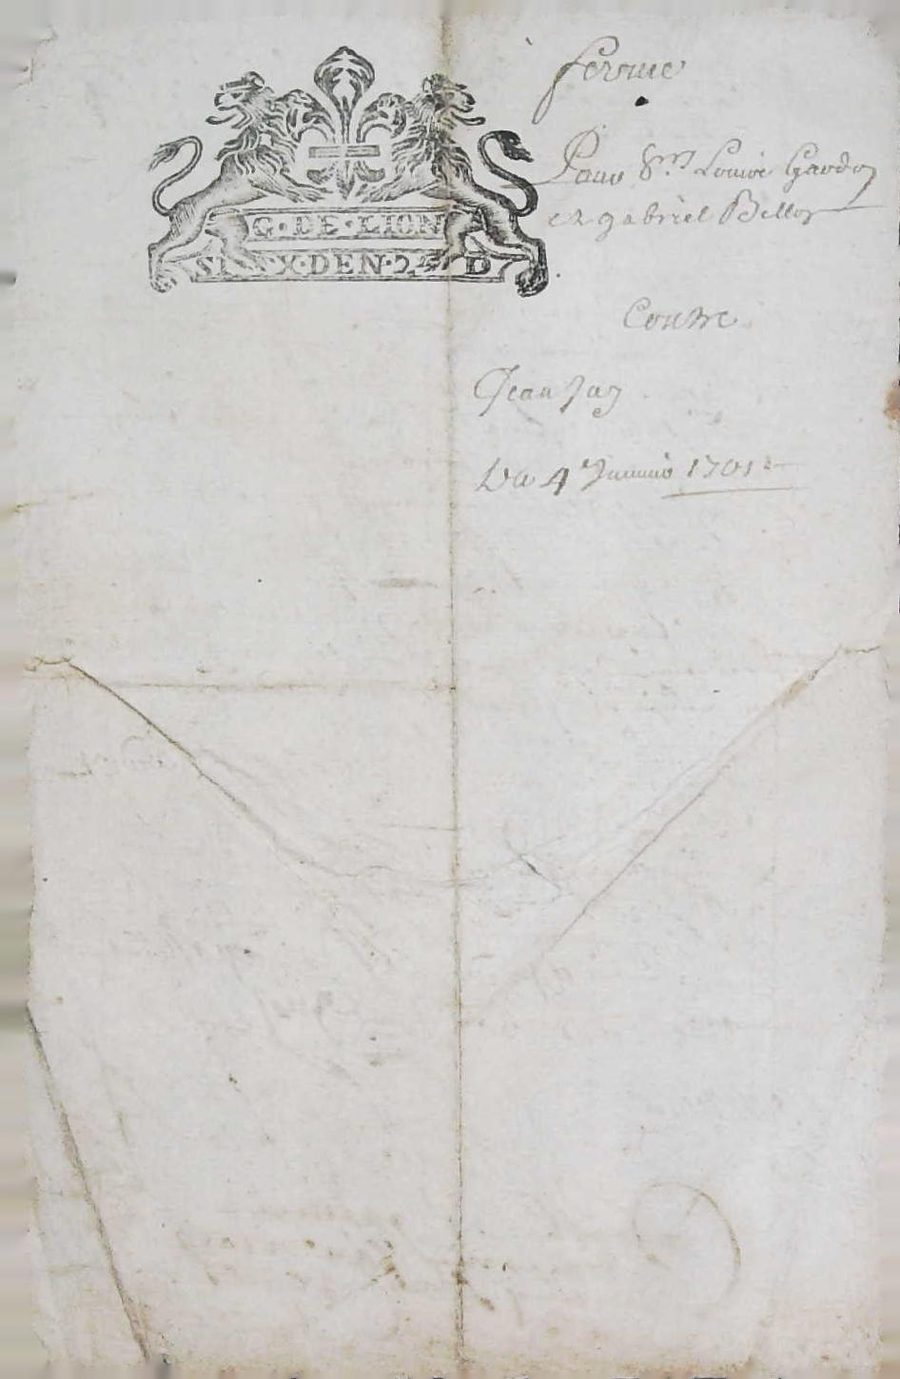 G·DE·LION
SI X·DEN·24 D
ferme
Pour Sr. Louis Gardon
et gabriel Bellon
Contre
Jean Jay
Du 4e Januier 1701